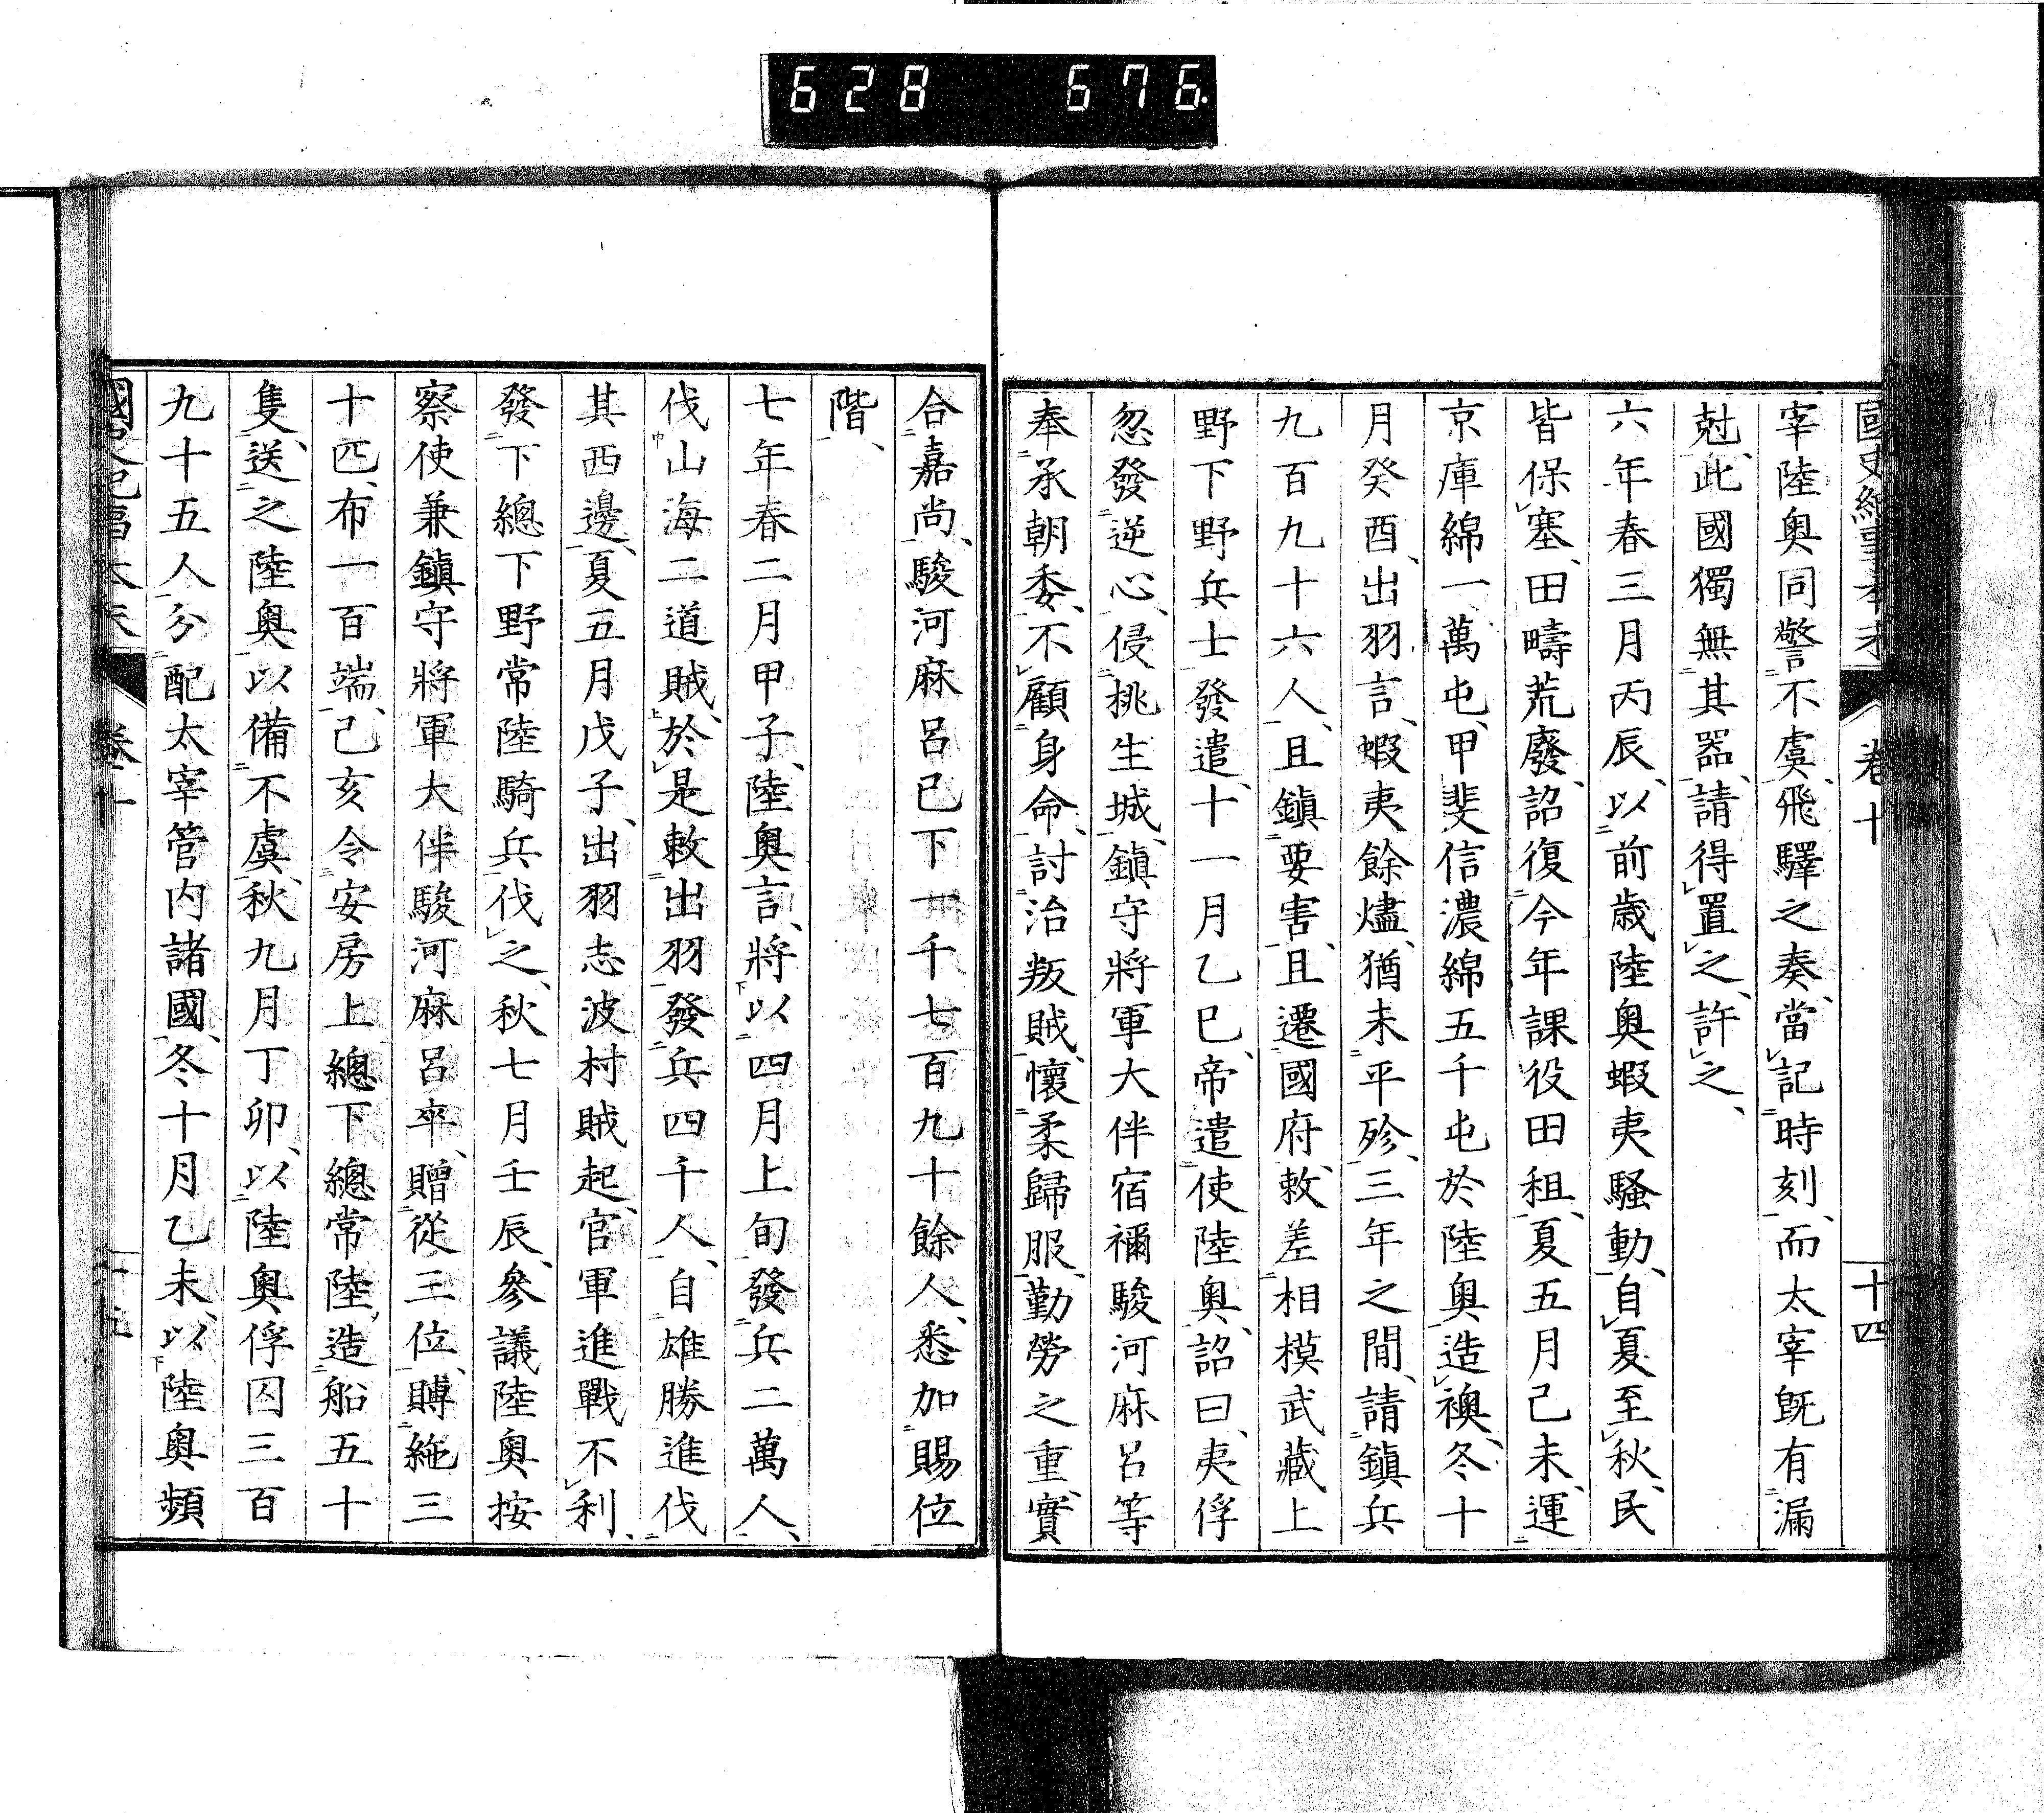 628 676.
國史紀事本末 卷十 十四
宰陸奧同警二不虞一、飛驛之奏、當レ記二時刻一、而太宰既有二漏
尅一、此國獨無二其器一、請得レ置レ之、許レ之、
六年春三月丙辰、以二前歲陸奧蝦夷騷動一、自レ夏至レ秋、民
皆保レ塞、田疇荒廢、詔復二今年課役田租一、夏五月己未、運二
京庫綿一萬屯、甲斐信濃綿五千屯於陸奧一造レ襖、冬十
月癸酉、出羽言、蝦夷餘燼、猶未二平殄一、三年之間、請二鎭兵
九百九十六人一、且鎭二要害一、且遷二國府一、敕差二相模武藏上
野下野兵士一發遣、十一月乙巳、帝遣二使陸奧一、詔曰、夷俘
忽發二逆心一、侵二挑生城一、鎭守將軍大伴宿禰駿河麻呂等
奉二承朝委一、不レ顧二身命一、討二治叛賊一、懷二柔歸服一、勤勞之重、實
合二嘉尚一、駿河麻呂已下一千七百九十餘人、悉加二賜位
階一、
七年春二月甲子、陸奧言、將下以二四月上旬一發二兵二萬人一、
伐中山海二道賊上、於レ是敕二出羽一發二兵四千人一、自二雄勝一進伐二
其西邊一、夏五月戊子、出羽志波村賊起、官軍進戰不レ利、
發二下總下野常陸騎兵一伐レ之、秋七月壬辰、參議陸奧按
察使兼鎭守將軍大伴駿河麻呂卒、贈二從三位一、賻二絁三
十匹、布一百端一、己亥令二安房上總下總常陸一、造二船五十
隻一、送二之陸奧一以備二不虞一、秋九月丁卯、以二陸奧俘囚三百
九十五人一分二配太宰管内諸國一、冬十月乙未、以下陸奧頻
國史紀事本末 卷十